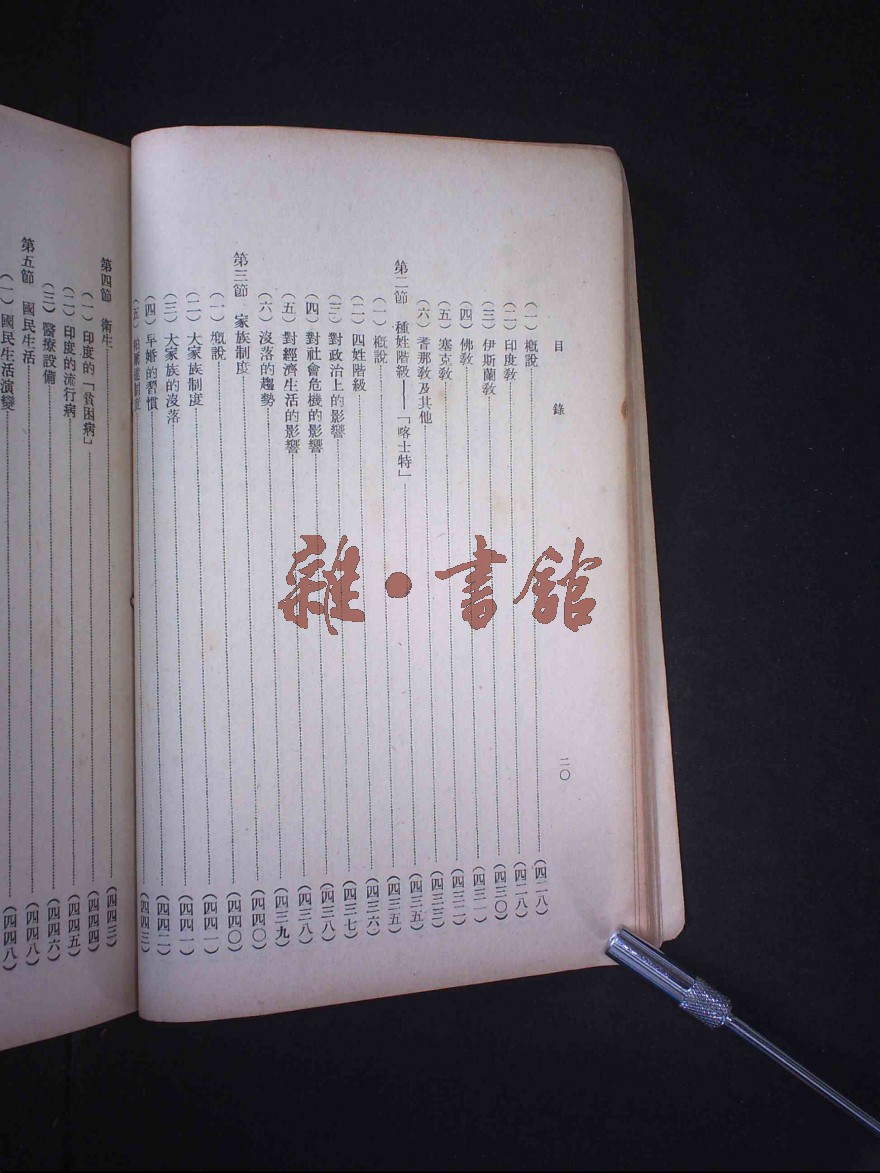 目錄
二〇
(一) 概說……(四二八)
(二) 印度教……(四二八)
(三) 伊斯蘭教……(四三〇)
(四) 佛教……(四三一)
(五) 塞克教……(四三二)
(六) 耆那教及其他……(四三三)
第二節 種姓階級——「喀士特」……(四三五)
(一) 概說……(四三五)
(二) 四姓階級……(四三六)
(三) 對政治上的影響……(四三七)
(四) 對社會危機的影響……(四三八)
(五) 對經濟生活的影響……(四三八)
(六) 沒落的趨勢……(四三九)
第三節 家族制度……(四四〇)
(一) 概說……(四四〇)
(二) 大家族制度……(四四一)
(三) 大家族的沒落……(四四一)
(四) 早婚的習慣……(四四二)
(五) ……(四四三)
第四節 衛生……(四四三)
(一) 印度的「貧困病」……(四四四)
(二) 印度的流行病……(四四五)
(三) 醫療設備……(四四六)
第五節 國民生活……(四四八)
(一) 國民生活演變……(四四八)
雜•書館